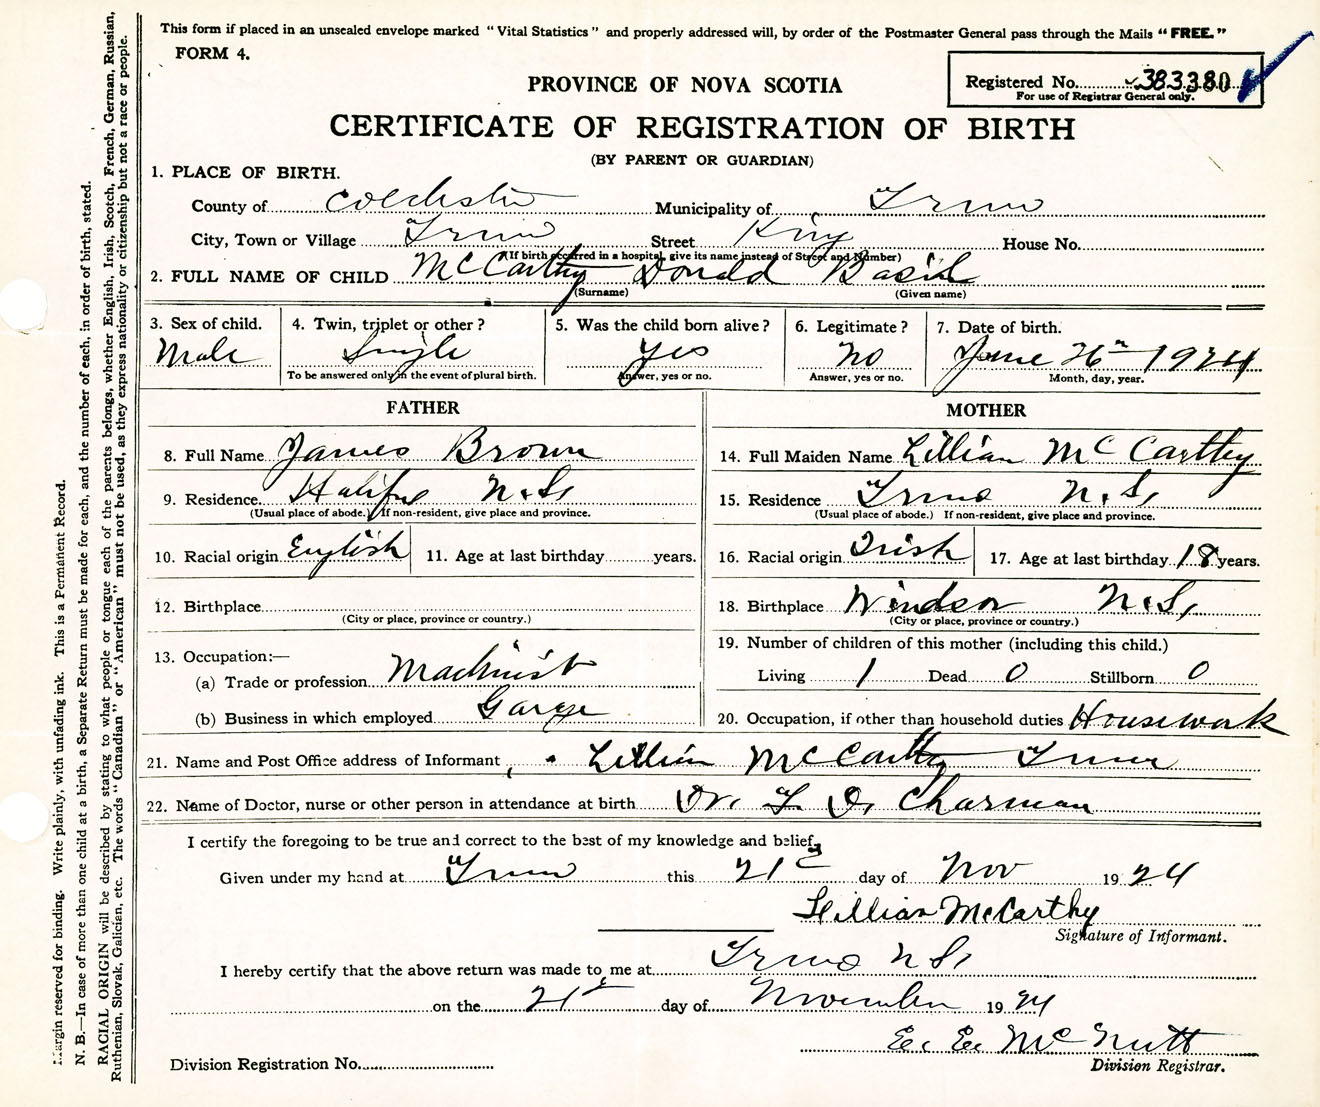 This form if placed in an unsealed envelope marked "Vital Statistics" and properly addressed will, by order of the Postmaster General pass through the Mails "FREE."
FORM 4.
PROVINCE OF NOVA SCOTIA
Registered No. 383380
For use of Registrar General only.
CERTIFICATE OF REGISTRATION OF BIRTH
(BY PARENT OR GUARDIAN)
1. PLACE OF BIRTH.
County of Colchester Municipality of Truro
City, Town or Village Truro Street King House No.
(If birth occurred in a hospital, give its name instead of Street and Number)
2. FULL NAME OF CHILD McCarthy Donald Basil
(Surname) (Given name)
3. Sex of child. 4. Twin, triplet or other? 5. Was the child born alive? 6. Legitimate? 7. Date of birth.
Male Single Yes No June 26th 1924
To be answered only in the event of plural birth. Answer, yes or no. Answer, yes or no. Month, day, year.
FATHER MOTHER
8. Full Name James Brown 14. Full Maiden Name Lillian McCarthy
9. Residence. Halifax N.S. 15. Residence Truro N.S.
(Usual place of abode.) If non-resident, give place and province. (Usual place of abode.) If non-resident, give place and province.
10. Racial origin English 11. Age at last birthday years. 16. Racial origin Irish 17. Age at last birthday 18 years.
12. Birthplace 18. Birthplace Windsor N.S.
(City or place, province or country.) (City or place, province or country.)
13. Occupation:— 19. Number of children of this mother (including this child.)
(a) Trade or profession Machinist Living 1 Dead 0 Stillborn 0
(b) Business in which employed Garage 20. Occupation, if other than household duties Housework
21. Name and Post Office address of Informant Lillian McCarthy Truro
22. Name of Doctor, nurse or other person in attendance at birth Dr. Charman
I certify the foregoing to be true and correct to the best of my knowledge and belief,
Given under my hand at Truro this 21st day of Nov 1924
Lillian McCarthy
Signature of Informant.
I hereby certify that the above return was made to me at Truro N.S.
on the 21st day of November 1924
E. E. McNutt
Division Registration No. Division Registrar.
Margin reserved for binding. Write plainly, with unfading ink. This is a Permanent Record.
N. B.—In case of more than one child at a birth, a Separate Return must be made for each, and the number of each, in order of birth, stated.
RACIAL ORIGIN will be described by stating to what people or tongue each of the parents belongs, whether English, Irish, Scotch, French, German, Russian,
Ruthenian, Slovak, Galician, etc. The words "Canadian" or "American" must not be used, as they express nationality or citizenship but not a race or people.